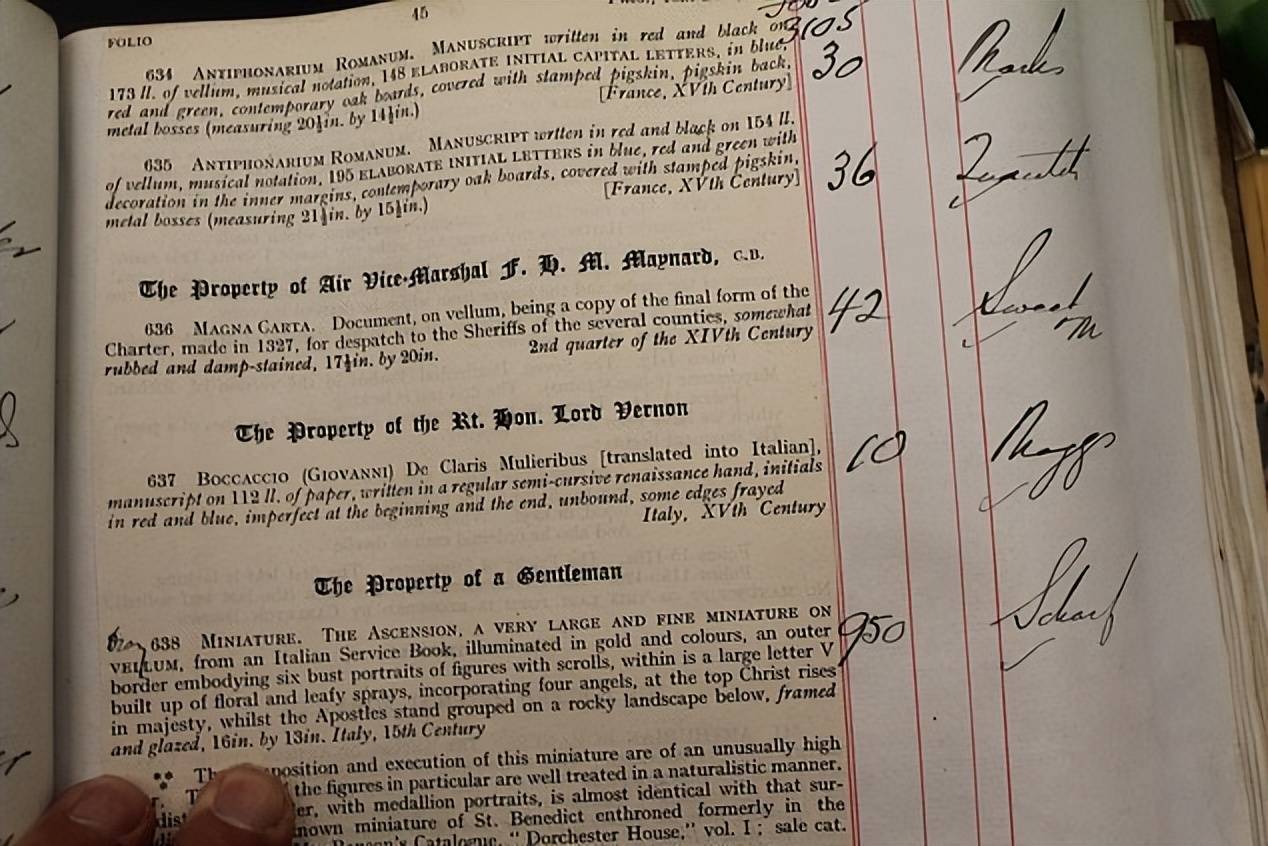 45
FOLIO
3105
634 ANTIPHONARIUM ROMANUM. MANUSCRIPT written in red and black on
173 ll. of vellum, musical notation, 148 ELABORATE INITIAL CAPITAL LETTERS, in blue,
red and green, contemporary oak boards, covered with stamped pigskin, pigskin back,
metal bosses (measuring 20½in. by 14½in.) [France, XVth Century]
30 Marks
635 ANTIPHONARIUM ROMANUM. MANUSCRIPT wrtten in red and black on 154 ll.
of vellum, musical notation, 195 ELABORATE INITIAL LETTERS in blue, red and green with
decoration in the inner margins, contemporary oak boards, covered with stamped pigskin,
metal bosses (measuring 21½in. by 15½in.) [France, XVth Century]
36 Quaritch
The Property of Air Vice-Marshal F. H. M. Maynard, C.B.
636 MAGNA CARTA. Document, on vellum, being a copy of the final form of the
Charter, made in 1327, for despatch to the Sheriffs of the several counties, somewhat
rubbed and damp-stained, 17½in. by 20in. 2nd quarter of the XIVth Century
42 Sweet M
The Property of the Rt. Hon. Lord Vernon
637 BOCCACCIO (GIOVANNI) De Claris Mulieribus [translated into Italian],
manuscript on 112 ll. of paper, written in a regular semi-cursive renaissance hand, initials
in red and blue, imperfect at the beginning and the end, unbound, some edges frayed
Italy, XVth Century
10 Maggs
The Property of a Gentleman
638 MINIATURE. THE ASCENSION, A VERY LARGE AND FINE MINIATURE ON
VELLUM, from an Italian Service Book, illuminated in gold and colours, an outer
border embodying six bust portraits of figures with scrolls, within is a large letter V
built up of floral and leafy sprays, incorporating four angels, at the top Christ rises
in majesty, whilst the Apostles stand grouped on a rocky landscape below, framed
and glazed, 16in. by 13in. Italy, 15th Century
950 Scharf
position and execution of this miniature are of an unusually high
the figures in particular are well treated in a naturalistic manner.
with medallion portraits, is almost identical with that sur-
miniature of St. Benedict enthroned formerly in the
Catalogue, "Dorchester House," vol. I; sale cat.